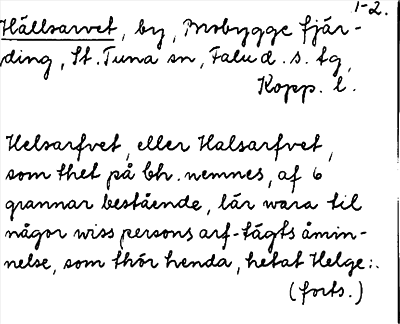 1-2.
Hällsarvet, by, Mobygge fjär-
ding, St. Tuna sn, Falu d. s. tg,
Kopp. l.
Helsarfvet, eller Halsarfvet,
som thet på bh. nemnes, af 6
grannar bestående, lär wara til
någor wiss persons arf-tägts åmin-
nelse, som thär henda, hetat Helge:.
(forts.)